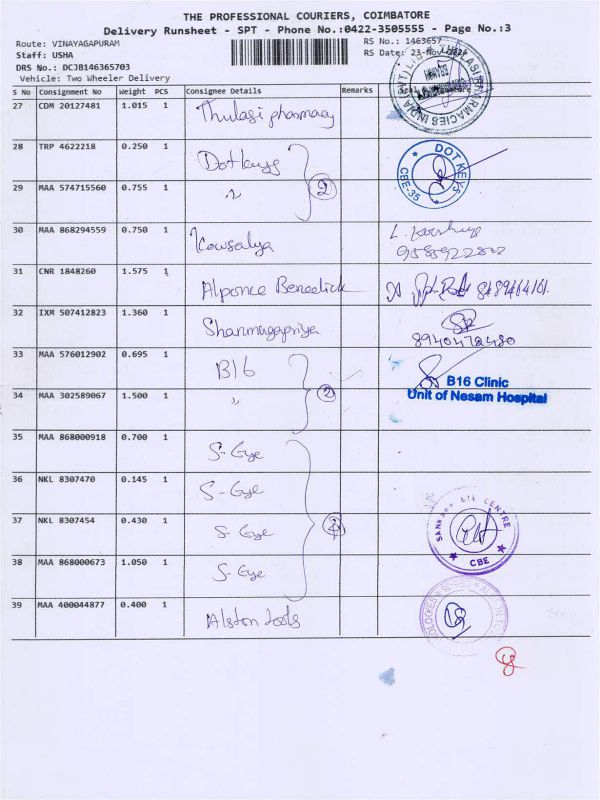 THE PROFESSIONAL COURIERS, COIMBATORE
Delivery Runsheet - SPT - Phone No.:0422-3505555 - Page No.:3
Route: VINAYAGAPURAM
RS No.: 1463657
Staff: USHA
RS Date: 23-Nov-
DRS No.: DCJB146365703
Vehicle: Two Wheeler Delivery
S No Consignment No Weight PCS Consignee Details Remarks
27 CDM 20127481 1.015 1 Thulasi pharmacy
PHARMACIES INDIA
28 TRP 4622218 0.250 1 Dotkeys
DOT KEYS
CBE-35
29 MAA 574715560 0.755 1 " 2
30 MAA 868294559 0.750 1 Kowsalya
31 CNR 1848260 1.575 1 Alponce Benedick
32 IXM 507412823 1.360 1 Shanmugapriya
8940472480
33 MAA 576012902 0.695 1 B16
B16 Clinic
34 MAA 302589067 1.500 1 " 2
Unit of Nesam Hospital
35 MAA 868000918 0.700 1 S-Eye
36 NKL 8307470 0.145 1 S-Eye
37 NKL 8307454 0.430 1 S-Eye 4
CENTRE
CBE
38 MAA 868000673 1.050 1 S-Eye
39 MAA 400044877 0.400 1 Alston tools